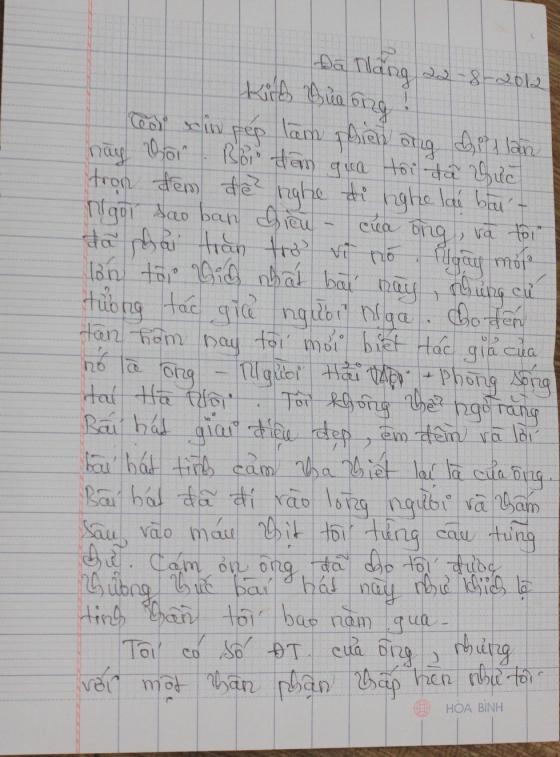 Đà Nẵng 22-8-2012
Kính thưa ông!
Tôi xin pép làm phiền ông chỉ 1 lần
này thôi. Bởi đêm qua tôi đã thức
trọn đêm để nghe đi nghe lại bài -
Ngôi sao ban chiều - của ông, và tôi
đã phải trăn trở vì nó. Ngày mới
lớn tôi thích nhất bài này, nhưng cứ
tưởng tác giả người Nga. Cho đến
tận hôm nay tôi mới biết tác giả của
nó là ông - Người Hải - Phòng sống
tại Hà Nội. Tôi không thể ngờ rằng
Bài hát giai điệu đẹp, êm đềm và lời
bài hát tình cảm tha thiết lại là của ông.
Bài hát đã đi vào lòng người và thấm
sâu, vào máu thịt tôi từng câu từng
chữ. Cảm ơn ông đã cho tôi được
thưởng thức bài hát này như khích lệ
tinh thần tôi bao năm qua -
Tôi có số ĐT. của ông, nhưng
với một thân phận thấp hèn như tôi
HÒA BÌNH